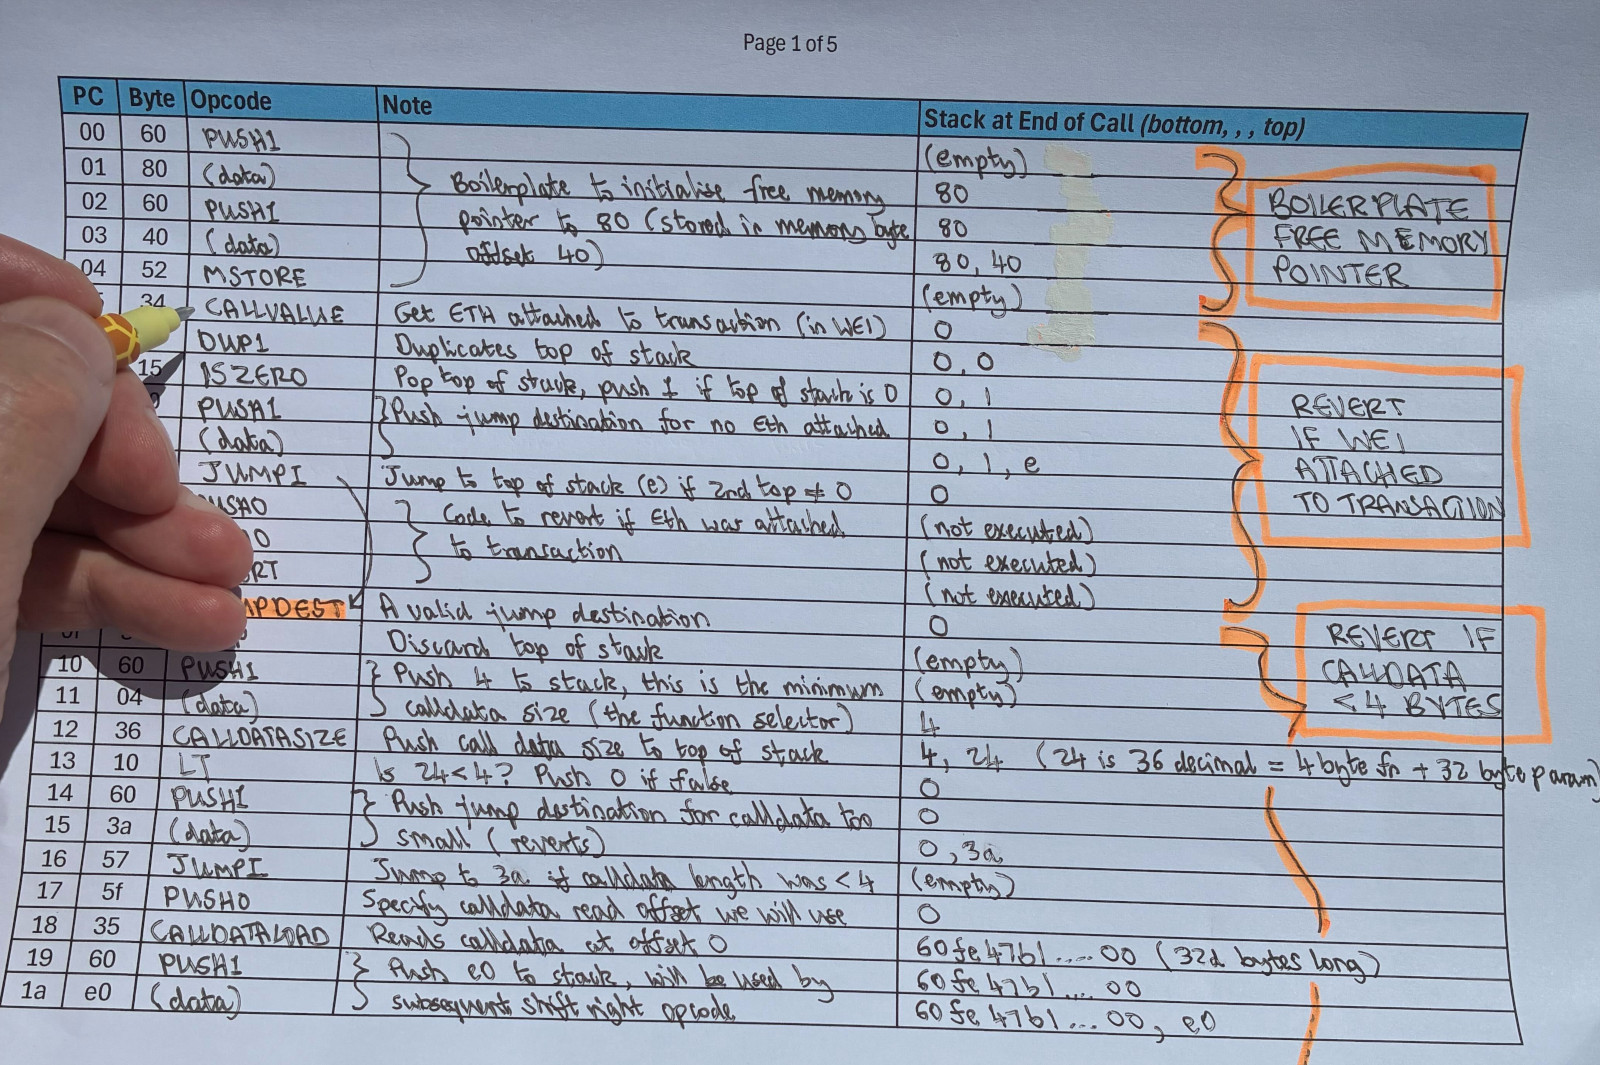 Page 1 of 5
PC Byte Opcode Note Stack at End of Call (bottom, , , top)
00 60 PUSH1 (empty)
01 80 (data) Boilerplate to initialise free memory 80
02 60 PUSH1 pointer to 80 (stored in memory byte 80
03 40 (data) offset 40) 80, 40
04 52 MSTORE (empty)
34 CALLVALUE Get ETH attached to transaction (in WEI) 0
DUP1 Duplicates top of stack 0, 0
15 ISZERO Pop top of stack, push 1 if top of stack is 0 0, 1
PUSH1 Push jump destination for no Eth attached 0, 1
(data) 0, 1, e
JUMPI Jump to top of stack (e) if 2nd top ≠ 0 0
USH0 Code to revert if Eth was attached (not executed)
0 to transaction (not executed)
RT (not executed)
MPDEST A valid jump destination 0
Discard top of stack (empty)
10 60 PUSH1 Push 4 to stack, this is the minimum (empty)
11 04 (data) calldata size (the function selector) 4
12 36 CALLDATASIZE Push call data size to top of stack 4, 24 (24 is 36 decimal = 4 byte fn + 32 byte param)
13 10 LT Is 24<4? Push 0 if false 0
14 60 PUSH1 Push jump destination for calldata too 0
15 3a (data) small (reverts) 0, 3a
16 57 JUMPI Jump to 3a if calldata length was < 4 (empty)
17 5f PUSH0 Specify calldata read offset we will use 0
18 35 CALLDATALOAD Reads calldata at offset 0 60fe47b1.....00 (32d bytes long)
19 60 PUSH1 Push e0 to stack, will be used by 60fe47b1....00
1a e0 (data) subsequent shift right opcode 60fe47b1...00, e0
BOILERPLATE
FREE MEMORY
POINTER
REVERT
IF WEI
ATTACHED
TO TRANSACTION
REVERT IF
CALLDATA
< 4 BYTES